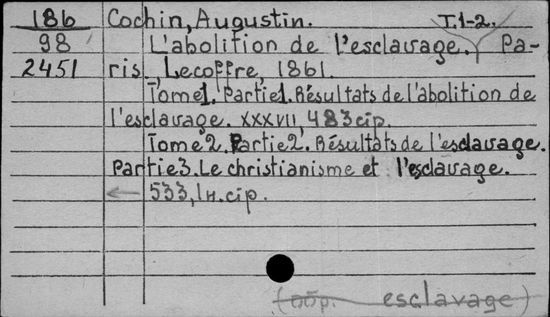 186 Cochin, Augustin. T.1-2.
98 L'abolition de l'esclavage. Pa-
2451 ris, Lecoffre, 1861.
Tome1. Partie1. Résultats de l'abolition de
l'esclavage. XXXVII, 483 cip.
Tome2. Partie2. Résultats de l'esclavage.
Partie3. Le christianisme et l'esclavage.
533, 1н. cip.
esclavage)